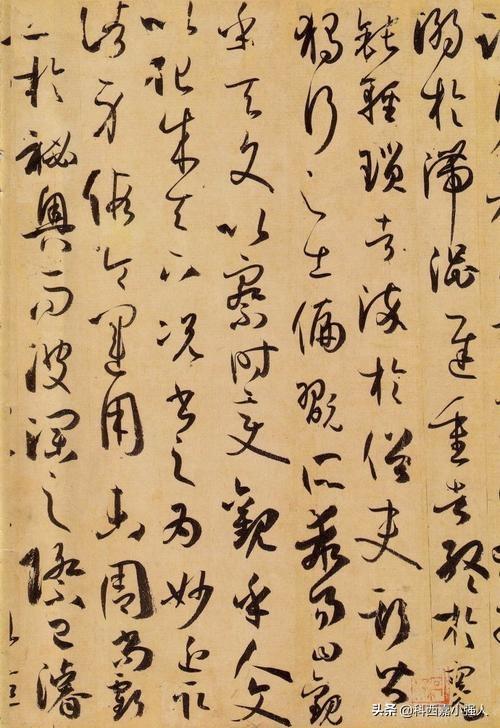 溺於滯澀遲重者終於蹇
鈍輕瑣者染於俗吏斯皆
獨行之士偏翫所乖易曰觀
乎天文以察時變觀乎人文
以化成天下況書之為妙近取
諸身假令運用未周尚虧
工於祕奧而波瀾之際已濬
头条 @科西嘉小强人